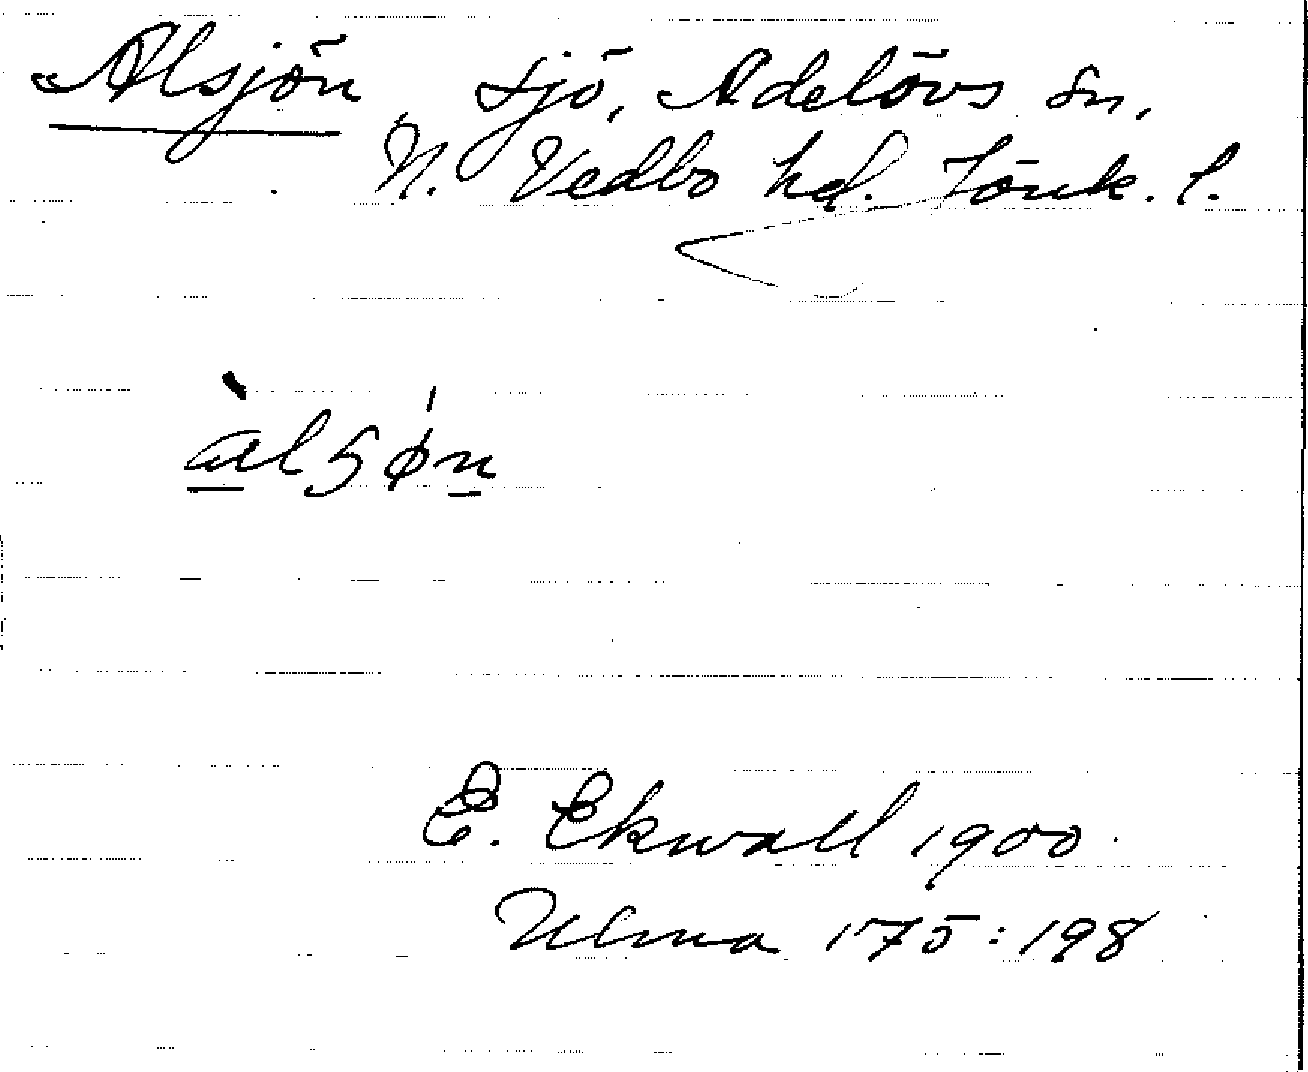 Alsjön, sjö, Adelövs sn,
N. Vedbo hd. Jönk. l.
àlʂø̍n
E. Ekwall 1900
Ulma 175:198